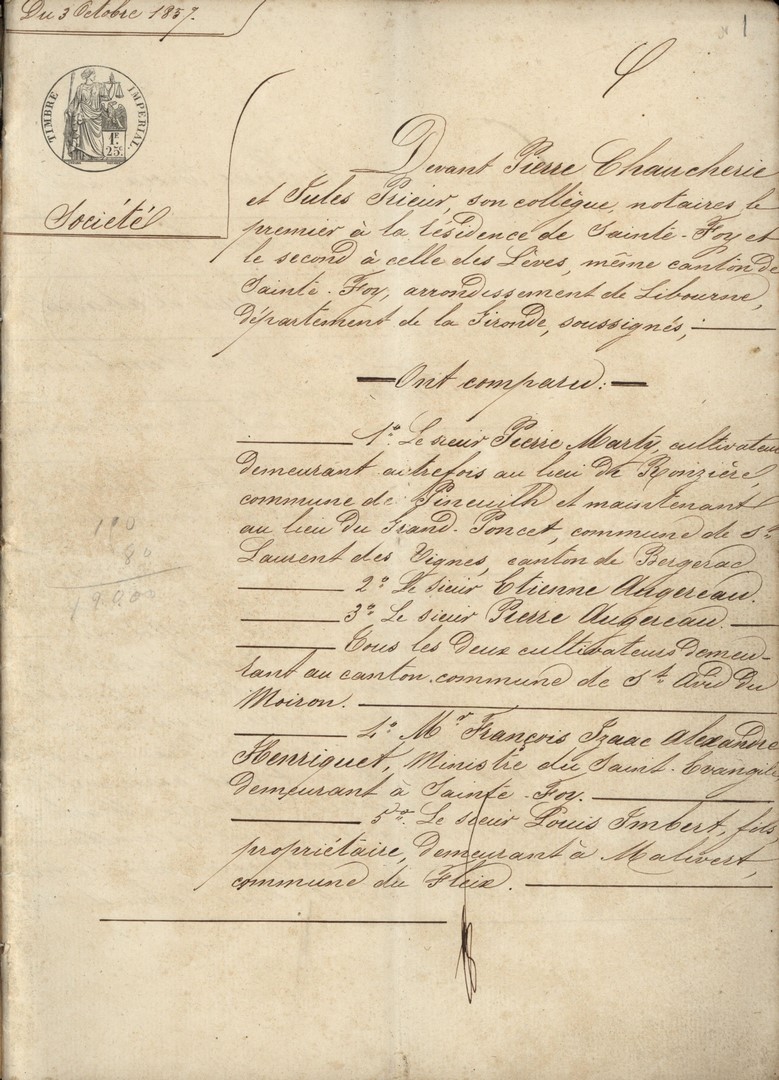 Du 3 Octobre 1857.
1
TIMBRE IMPERIAL.
1F.
25c.
Société
Devant Pierre Chaucherie
et Jules Prieur, son collègue, notaires le
premier à la résidence de Sainte-Foy et
le second à celle des Lèves, même canton de
Sainte-Foy, arrondissement de Libourne,
département de la Gironde, soussignés,
Ont comparu:
1o. Le sieur Pierre Marty, cultivateur
demeurant autrefois au lieu de Ronzière,
commune de Pineuilh et maintenant
au lieu du Grand-Poncet, commune de St
Laurent des Vignes, canton de Bergerac
2o Le sieur Etienne Augereau.
3o Le sieur Pierre Augereau.
Tous les deux cultivateurs demeu-
rant au canton, commune de St Avid du
Moiron.
4o Mr François Izaac Alexandre
Henriquet, Ministre du Saint-Evangile
demeurant à Sainte-Foy.
5o. Le sieur Louis Imbert, fils,
propriétaire, demeurant à Malivert,
commune du Fleix.
110
80